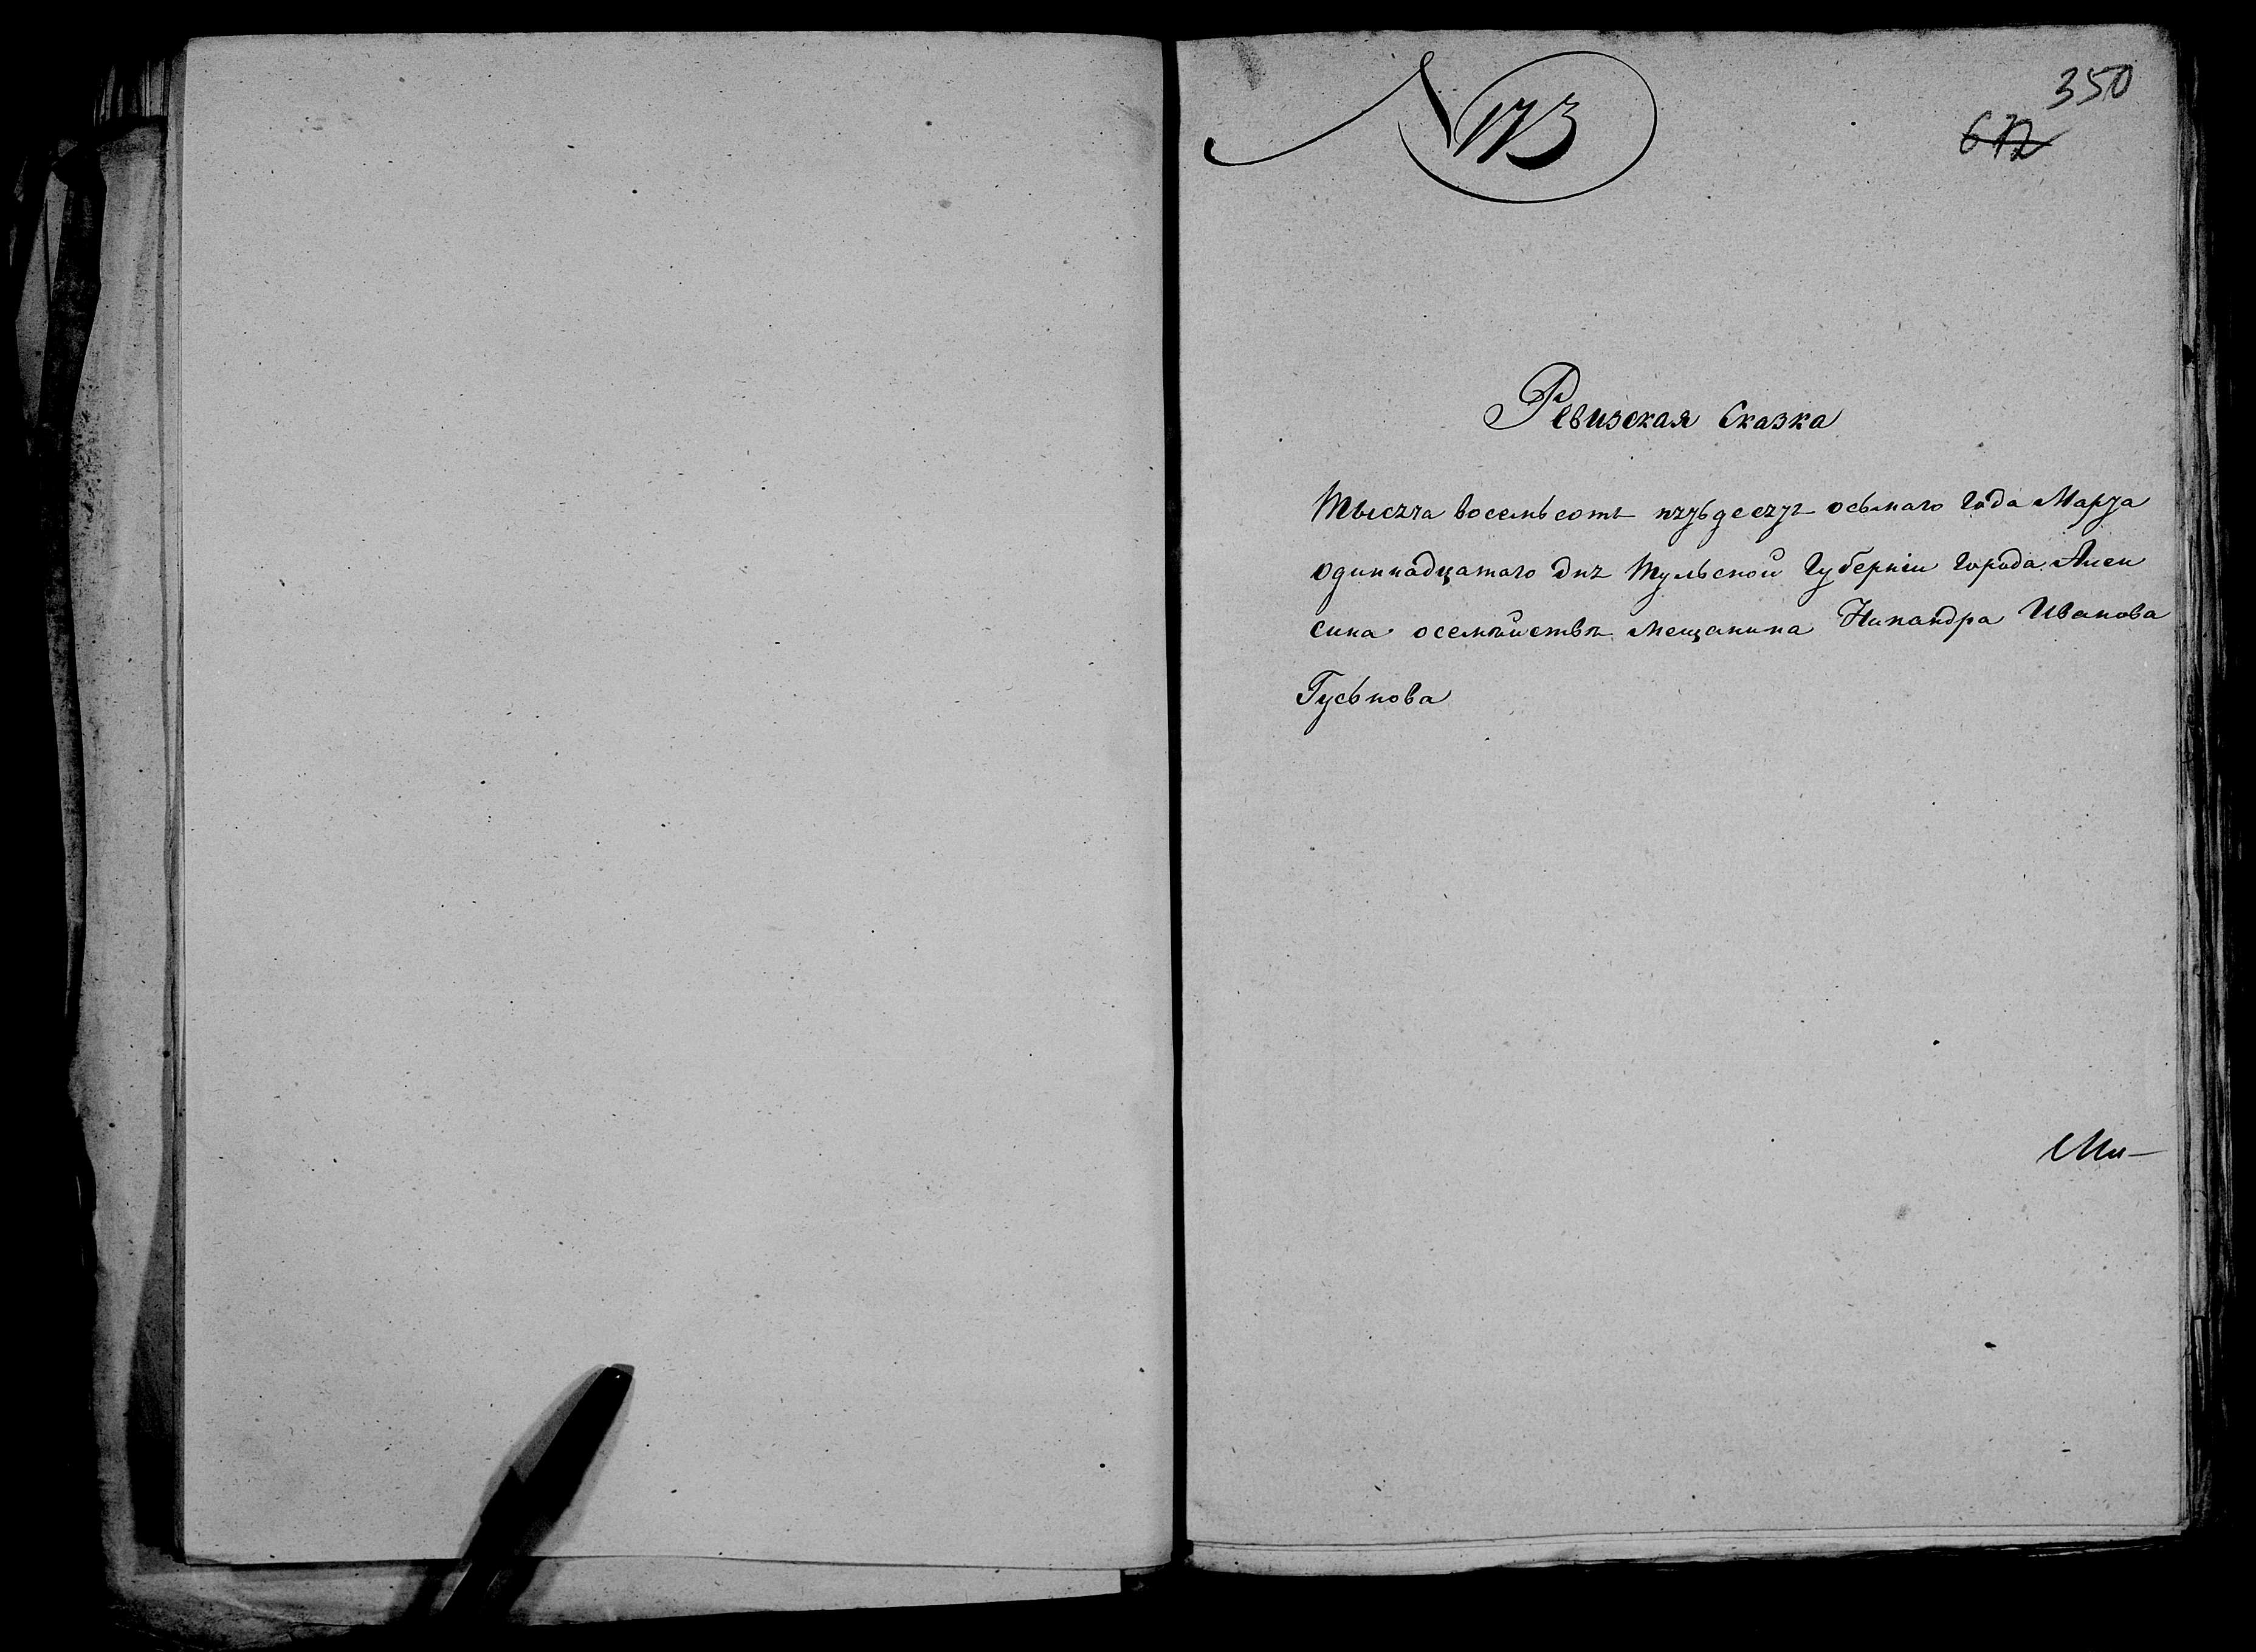 N 173
350
672
Ревизская Сказка
Тысяча восемьсотъ пятьдесятъ осьмаго Года Марта
одиннадцатаго дня Тульской Губерніи города Алек
сина осемѣйствѣ мещанина Никандра Иванова
Гуськова
Ми-